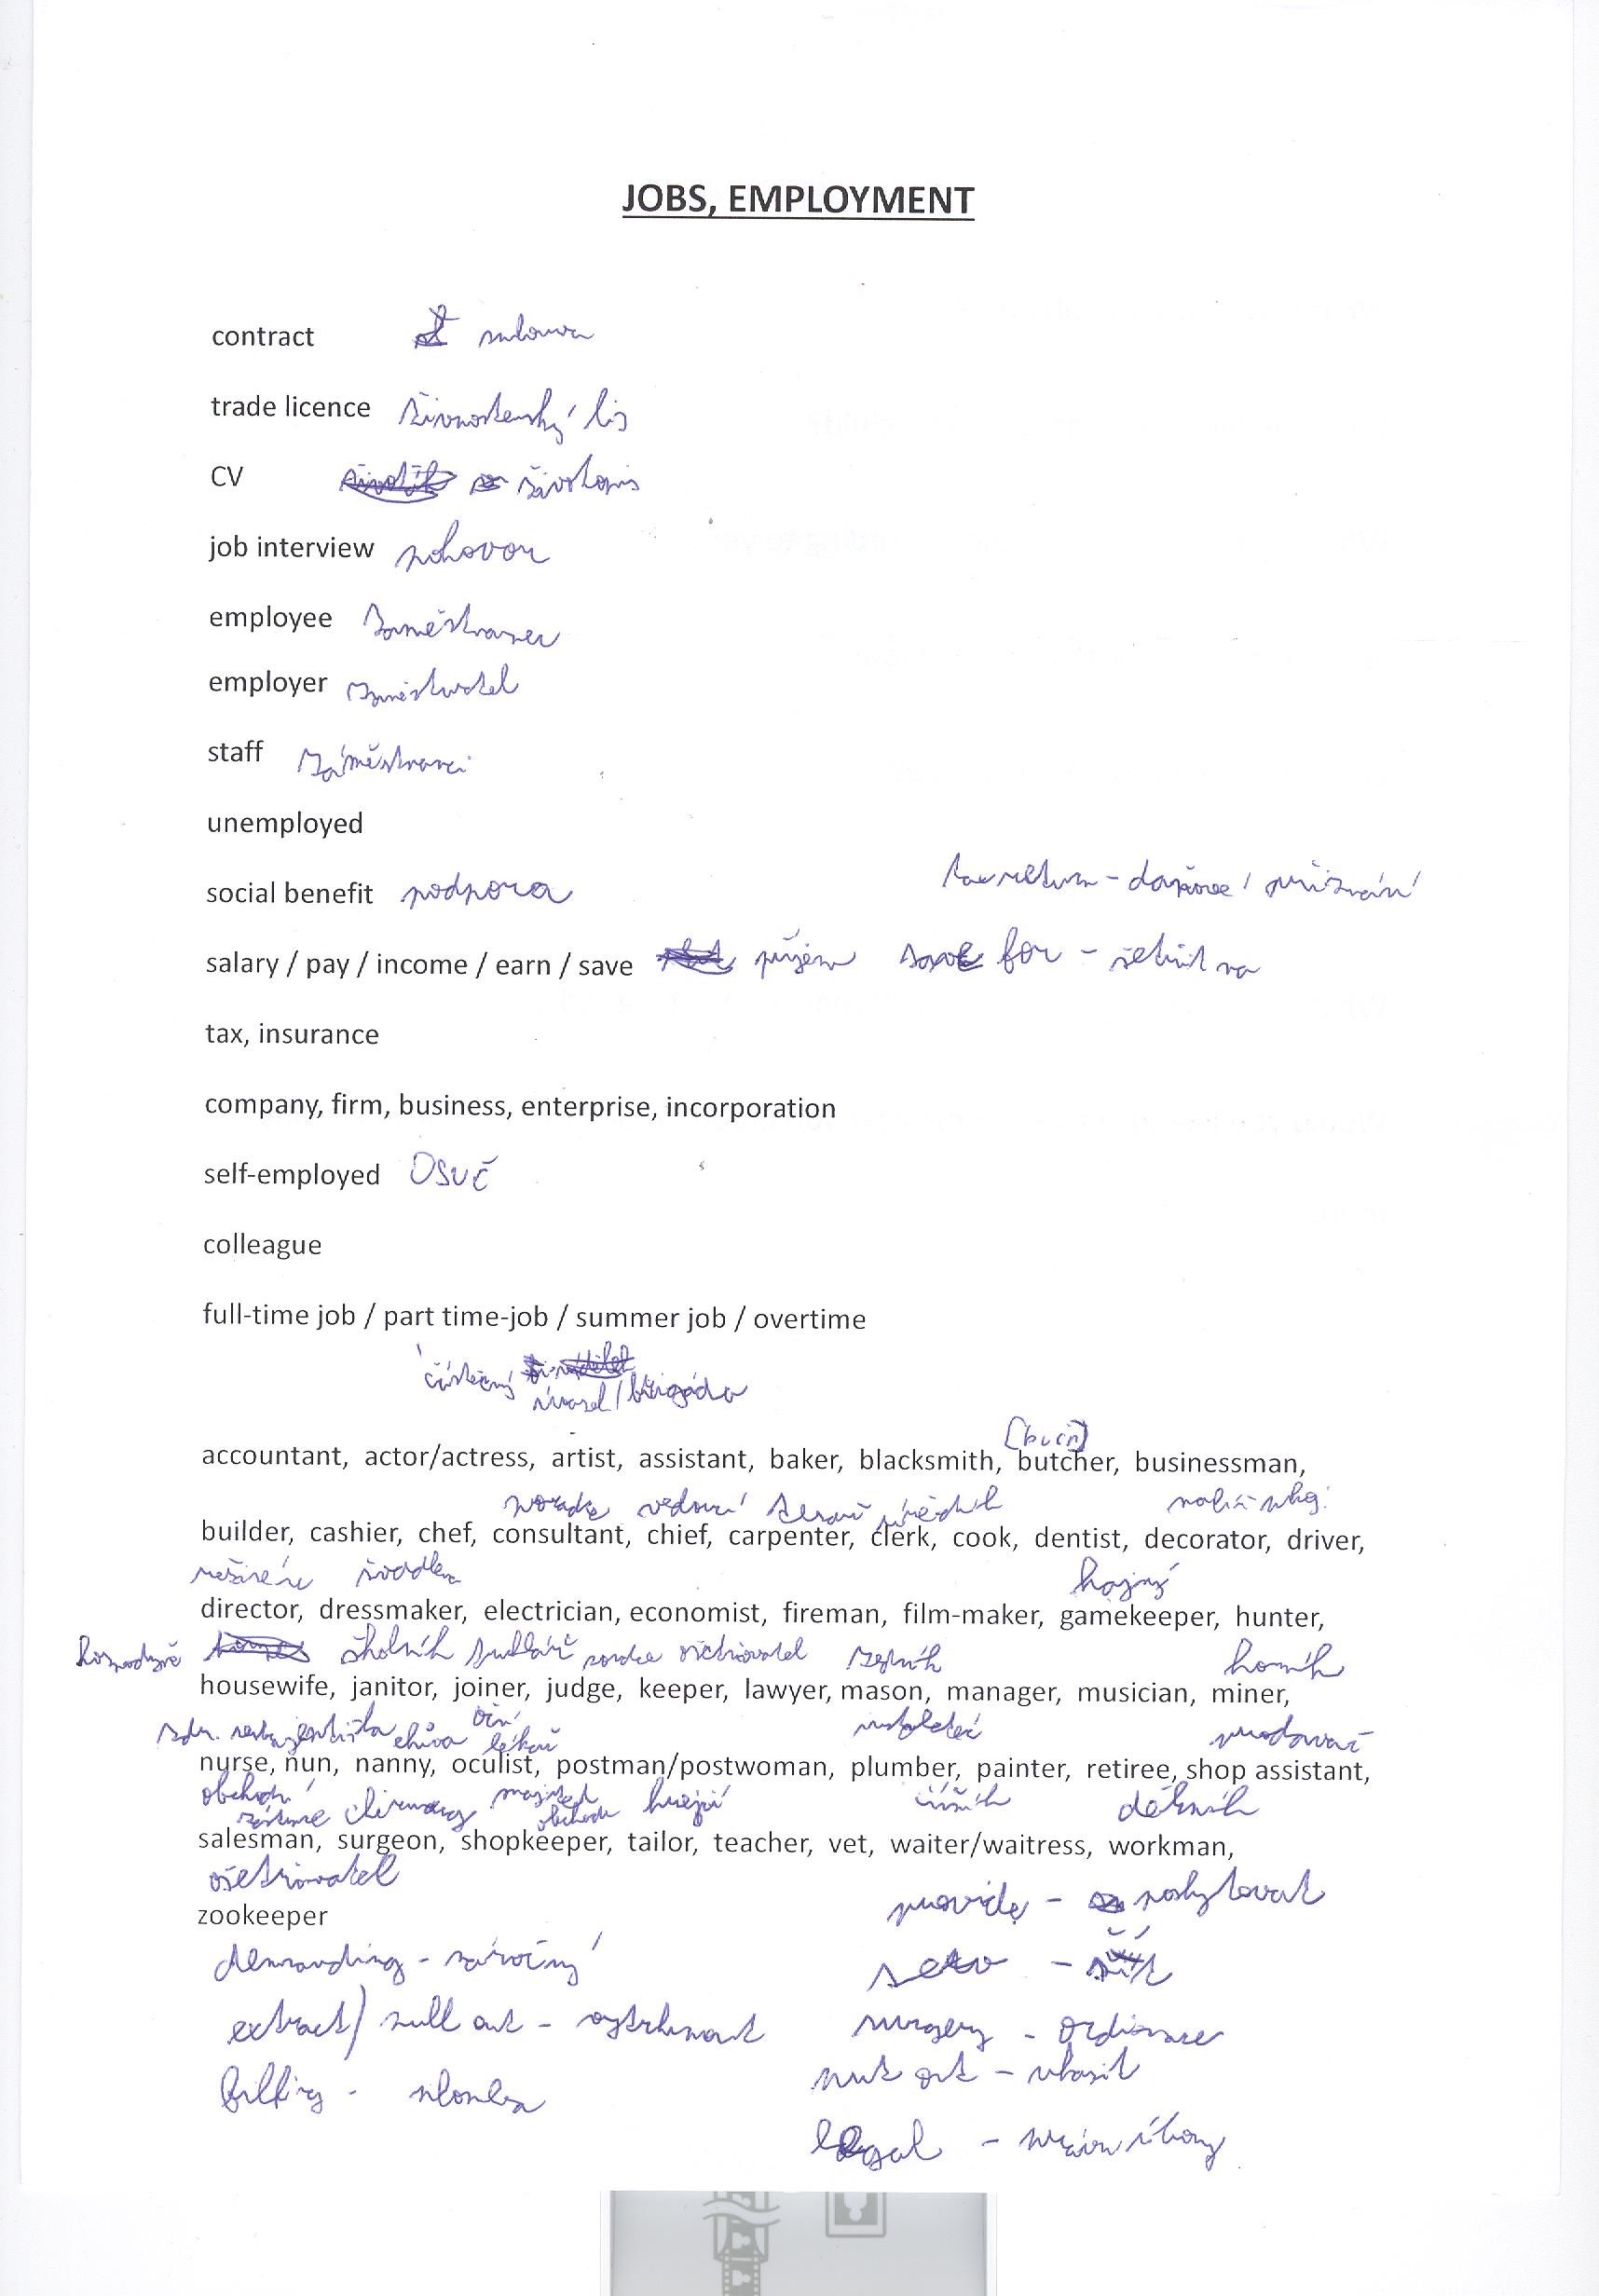 JOBS, EMPLOYMENT
contract smlouva
trade licence živnostenský lis
CV životopis
job interview pohovor
employee zaměstnanec
employer
staff záměstnanci
unemployed
social benefit podpora
tax return - daňové přiznání
salary / pay / income / earn / save příjem save for - šetřit na
tax, insurance
company, firm, business, enterprise, incorporation
self-employed OSVČ
colleague
full-time job / part time-job / summer job / overtime
částečný
úvazek / brigáda
accountant, actor/actress, artist, assistant, baker, blacksmith, butcher, businessman,
poradce vedoucí tesař
builder, cashier, chef, consultant, chief, carpenter, clerk, cook, dentist, decorator, driver,
švadlena hajný
director, dressmaker, electrician, economist, fireman, film-maker, gamekeeper, hunter,
školník truhlář soudce ošetřovatel zedník horník
housewife, janitor, joiner, judge, keeper, lawyer, mason, manager, musician, miner,
zdr. sestra jeptiška chůva oční lékař prodavač
nurse, nun, nanny, oculist, postman/postwoman, plumber, painter, retiree, shop assistant,
obchodní zástupce chirurg majitel obchodu krejčí číšník dělník
salesman, surgeon, shopkeeper, tailor, teacher, vet, waiter/waitress, workman,
ošetřovatel
zookeeper
provide - poskytovat
demanding - náročný
sew - šít
extract / pull out - vytrhnout
surgery - ordinace
put out - uhasit
filling - plomba
legal - právní